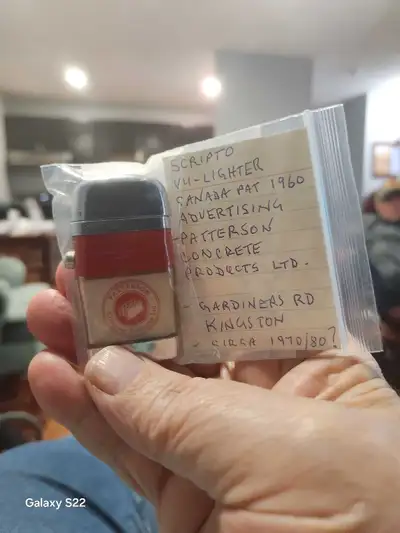 SCRIPTO
VU-LIGHTER
CANADA PAT 1960
ADVERTISING
-PATTERSON
CONCRETE
PRODUCTS LTD.
- GARDINERS RD
KINGSTON
- CIRCA 1970/80?
Galaxy S22